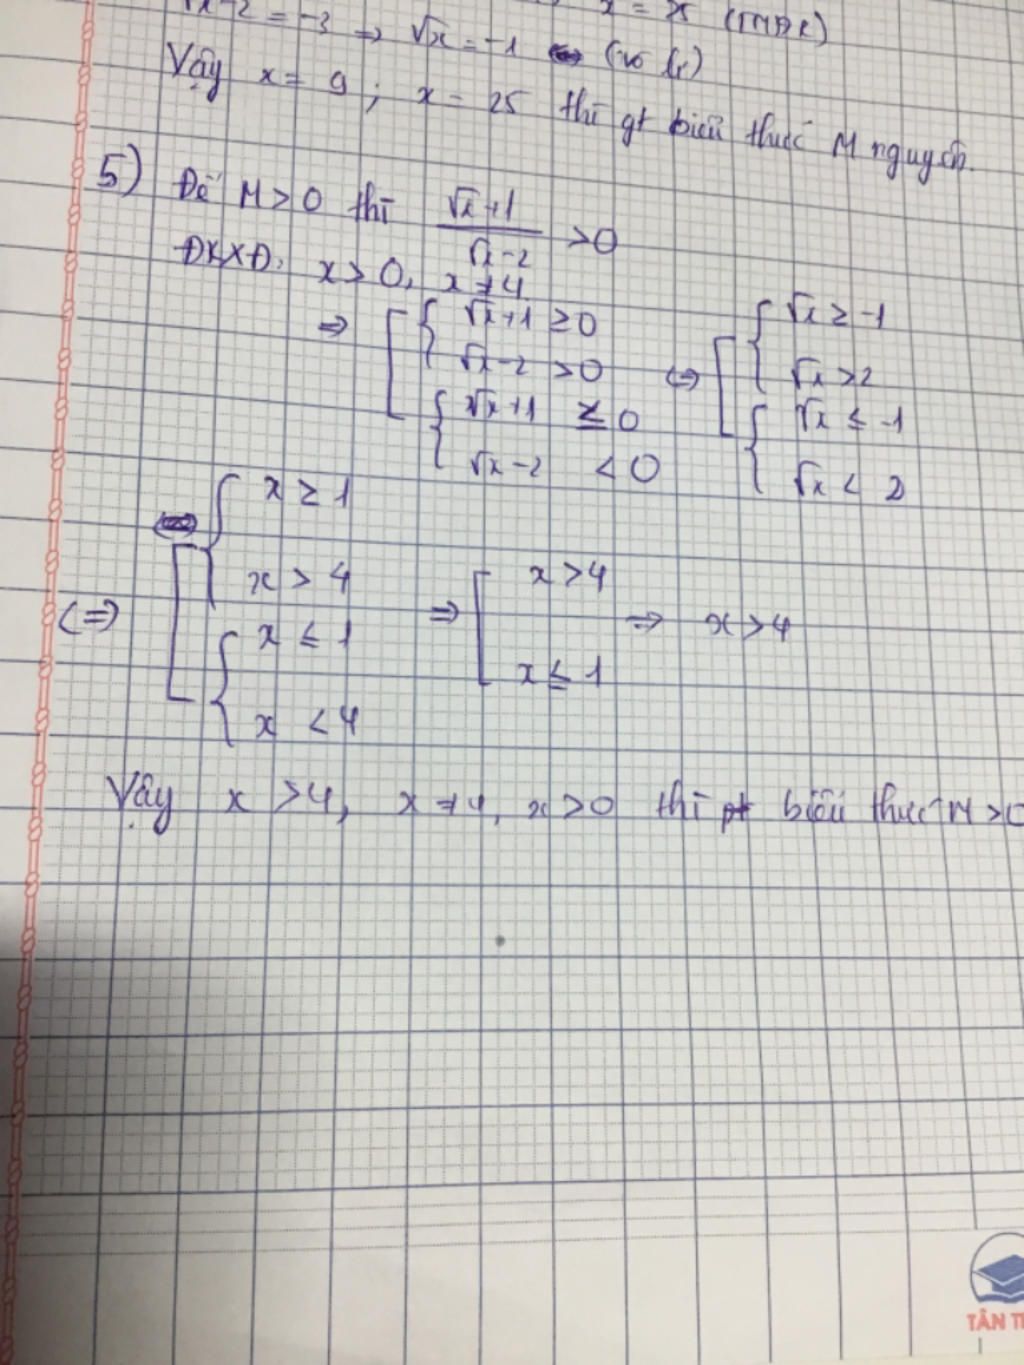 √x-2 = -3 ⇒ √x = -1 (vô lý)
Vậy x = 9 ; x = 25 thì gt biểu thức M nguyên.
5) Để M > 0 thì (√x+1)/(√x-2) > 0
ĐKXĐ: x > 0, x ≠ 4
⇒ [ { √x+1 ≥ 0 ⇔ [ { √x ≥ -1
√x-2 > 0 √x > 2
{ √x+1 ≤ 0 { √x ≤ -1
√x-2 < 0 √x < 2
⇔ [ { x ≥ 1
x > 4 ⇒ [ x > 4 ⇒ x > 4
{ x ≤ 1 x ≤ 1
x < 4
Vậy x > 4, x ≠ 4, x > 0 thì biểu thức M > 0
TÂN